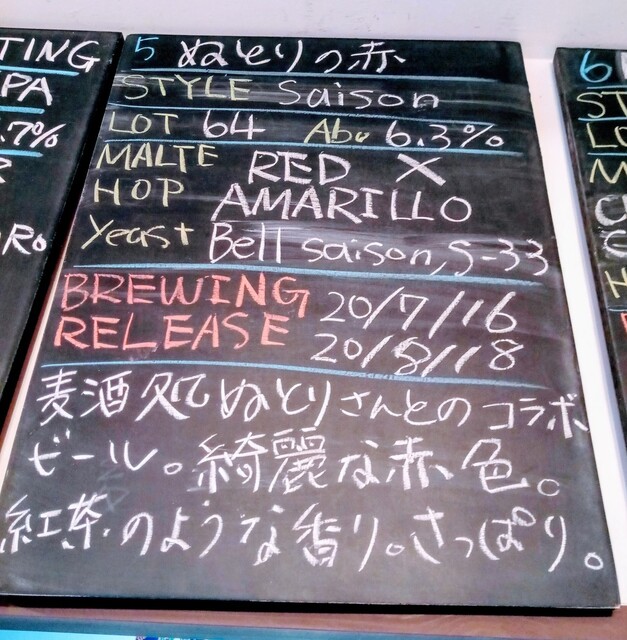 TING
PA
.7%
Ro
5 ぬとりの赤
STYLE Saison
LOT 64 Abv 6.3%
MALTE RED X
HOP AMARILLO
Yeast Bell saison, S-33
BREWING 20/7/16
RELEASE 20/8/18
麦酒処ぬとりさんとのコラボ
ビール。綺麗な赤色。
紅茶のような香り。さっぱり。
6
ST
LO
M
H